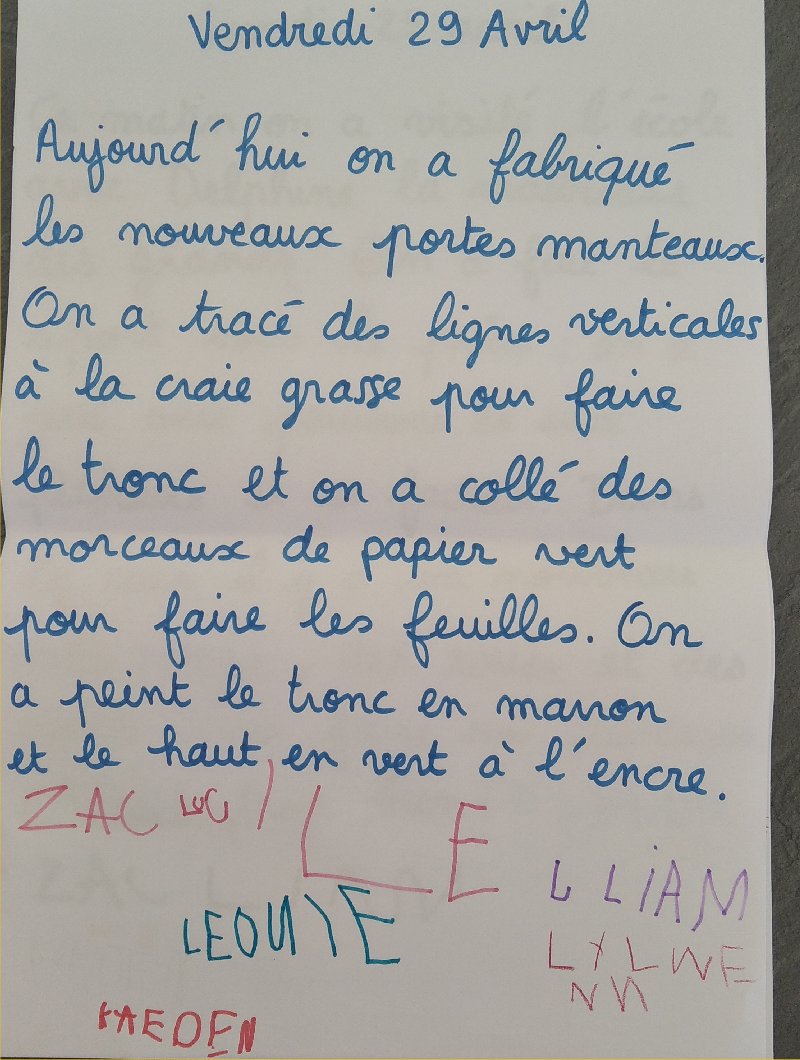 Vendredi 29 Avril
Aujourd'hui on a fabriqué
les nouveaux portes manteaux.
On a tracé des lignes verticales
à la craie grasse pour faire
le tronc et on a collé des
morceaux de papier vert
pour faire les feuilles. On
a peint le tronc en marron
et le haut en vert à l'encre.
ZAC
LIAM
KAEDEN